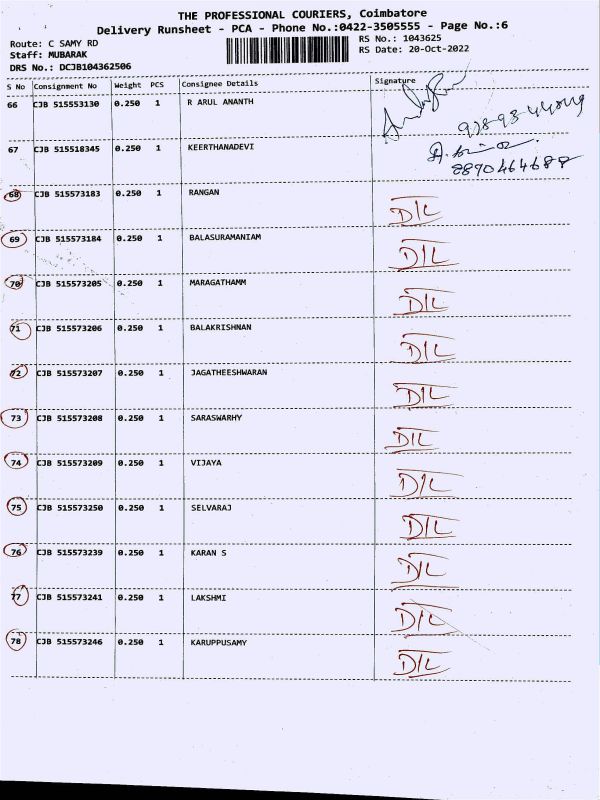 THE PROFESSIONAL COURIERS, Coimbatore
Delivery Runsheet - PCA - Phone No.:0422-3505555 - Page No.:6
Route: C SAMY RD
RS No.: 1043625
Staff: MUBARAK
RS Date: 20-Oct-2022
DRS No.: DCJB104362506
S No Consignment No Weight PCS Consignee Details Signature
66 CJB 515553130 0.250 1 R ARUL ANANTH
67 CJB 515518345 0.250 1 KEERTHANADEVI
8890464688
68 CJB 515573183 0.250 1 RANGAN D/L
69 CJB 515573184 0.250 1 BALASURAMANIAM D/L
70 CJB 515573205 0.250 1 MARAGATHAMM D/L
71 CJB 515573206 0.250 1 BALAKRISHNAN D/L
72 CJB 515573207 0.250 1 JAGATHEESHWARAN D/L
73 CJB 515573208 0.250 1 SARASWARHY D/L
74 CJB 515573209 0.250 1 VIJAYA D/L
75 CJB 515573250 0.250 1 SELVARAJ D/L
76 CJB 515573239 0.250 1 KARAN S D/L
77 CJB 515573241 0.250 1 LAKSHMI D/L
78 CJB 515573246 0.250 1 KARUPPUSAMY D/L